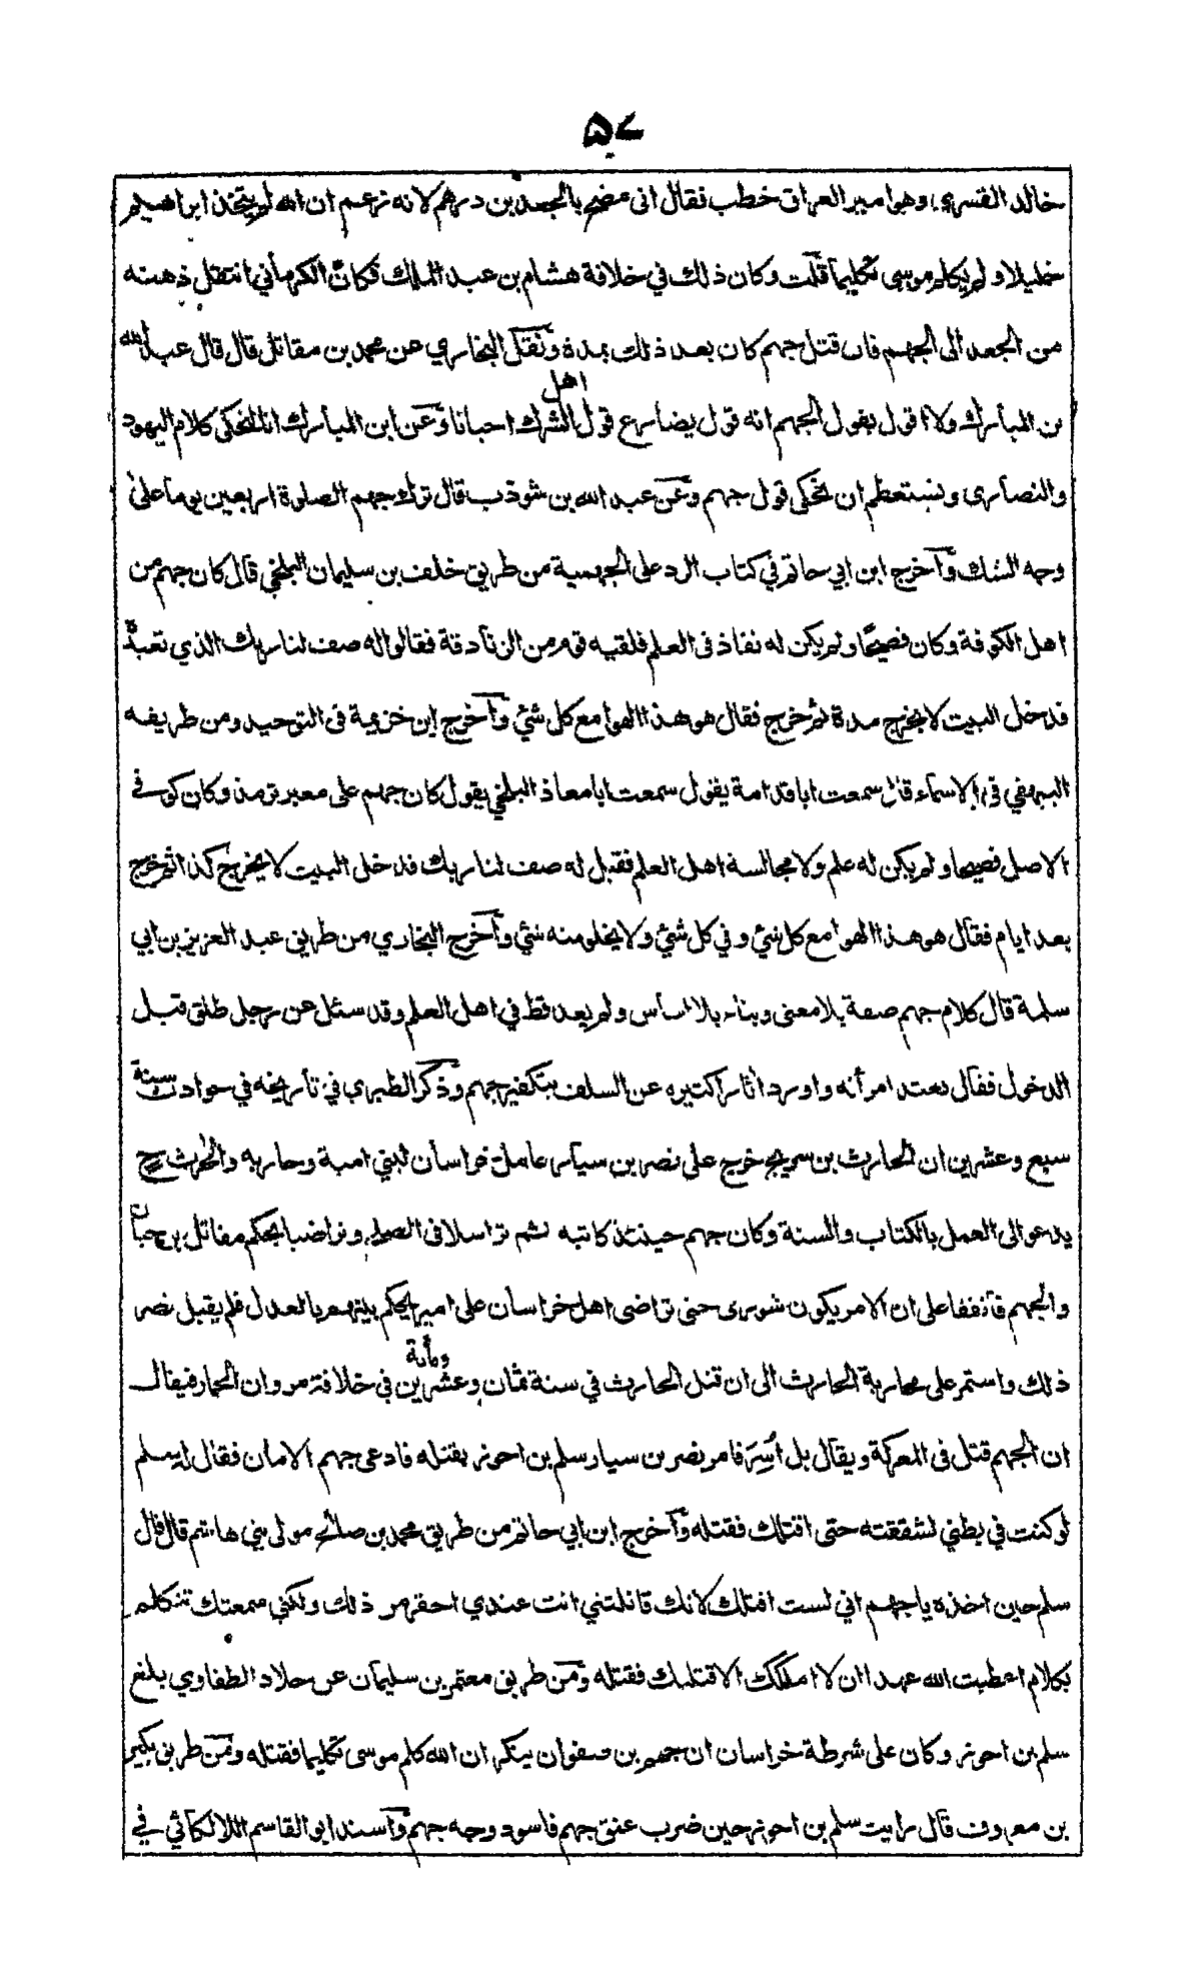 ٥٧
خالد القسري وهو امير العراق خطب فقال اني مضح بالجعد بن درهم لانه زعم ان الله لم يتخذ ابراهيم
خليلا ولم يكلم موسى تكليما قلت وكان ذلك في خلافة هشام بن عبد الملك فكان الكرماني انتقل ذهنه
من الجعد الى الجهم فان قتل جهم كان بعد ذلك بمدة ونقل البخاري عن محمد بن مقاتل قال قال عبد الله
بن المبارك ولا اقول بقول الجهم انه قول يضارع قول اهل الشرك احيانا وعن ابن المبارك انا لنحكى كلام اليهود
والنصارى ونستعظم ان نحكى قول جهم وعن عبد الله بن شوذب قال ترك جهم الصلوة اربعين يوما على
وجه الشك وآخرج ابن ابي حاتم في كتاب الرد على الجهمية من طريق خلف بن سليمان البلخي قال كان جهم من
اهل الكوفة وكان فصيحا ولم يكن له نفاذ في العلم فلقيه قوم من الزنادقة فقالوا له صف لنا ربك الذي تعبده
فدخل البيت لا يخرج مدة ثم خرج فقال هو هذا الهوا مع كل شئ وآخرج ابن خزيمة في التوحيد ومن طريقه
البيهقي في الاسماء قال سمعت ابا قدامة يقول سمعت ابا معاذ البلخي يقول كان جهم على معبر ترمذ وكان كوفي
الاصل فصيحا ولم يكن له علم ولا مجالسة اهل العلم فقيل له صف لنا ربك فدخل البيت لا يخرج كذا ثم خرج
بعد ايام فقال هو هذا الهوا مع كل شئ وفي كل شئ ولا يخلو منه شئ وآخرج البخاري من طريق عبد العزيز بن ابي
سلمة قال كلام جهم صفة بلا معنى وبناء بلا اساس ولم يعد قط في اهل العلم وقد سئل عن رجل طلق قبل
الدخول فقال تعتد امرأته واورد اثارا كثيره عن السلف بتكفير جهم وذكر الطبري في تاريخه في حوادث سنة
سبع وعشرين ان الحارث بن سريج خرج على نصر بن سيار عامل خراسان لبني امية وحاربه والحرث ح
يدعو الى العمل بالكتاب والسنة وكان جهم حينئذ كاتبه ثم تراسلا في الصلح وتراضيا بحكم مقاتل بن حبان
والجهم فاتفقا على ان الامر يكون شورى حتى تراضى اهل خراسان على امير يحكم بينهم بالعدل فلم يقبل نصر
ذلك واستمر على محاربة الحارث الى ان قتل الحارث في سنة ثمان وعشرين ومأية في خلافة مروان الحمار فيقال
ان الجهم قتل في المعركة ويقال بل أُسِرَ فامر نصر بن سيار سلم بن احوز بقتله فادعى جهم الامان فقال له سلم
لو كنت في بطني لشققته حتى اقتلك فقتله وآخرج ابن ابي حاتم من طريق محمد بن صالح مولى بني هاشم قال قال
سلم حين اخذه يا جهم اني لست اقتلك لانك قاتلتني انت عندي احقر من ذلك ولكني سمعتك تتكلم
بكلام اعطيت الله عهدا ان لا املكك الا قتلتك فقتله ومن طريق معتمر بن سليمان عن خلاد الطفاوي بلغ
سلم بن احوز وكان على شرطة خراسان ان جهم بن صفوان ينكر ان الله كلم موسى تكليما فقتله ومن طريق بكير
بن معروف قال رايت سلم بن احوز حين ضرب عنق جهم فاسود وجه جهم وآسند ابو القاسم اللالكائي في